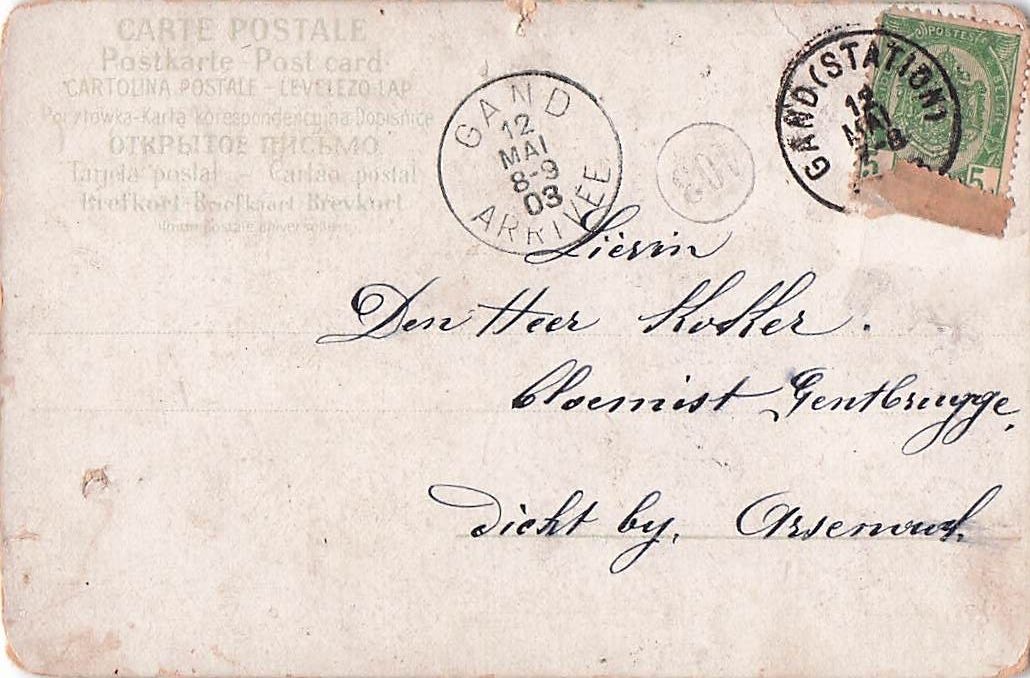 CARTE POSTALE
Postkarte - Post card
CARTOLINA POSTALE - LEVELEZO-LAP
Pocztówka - Karta korespondencyjna
ОТКРЫТОЕ ПИСЬМО
Tarjeta postal Cartao postal
Brefkort - Briefkaart Brevkort
GAND
12
MAI
8-9
03
ARRIVÉE
GAND (STATION)
12
MAI
POSTES
5
5
Liévin
Den Heer KoKker.
bloemist Gentbrugge,
dicht by,